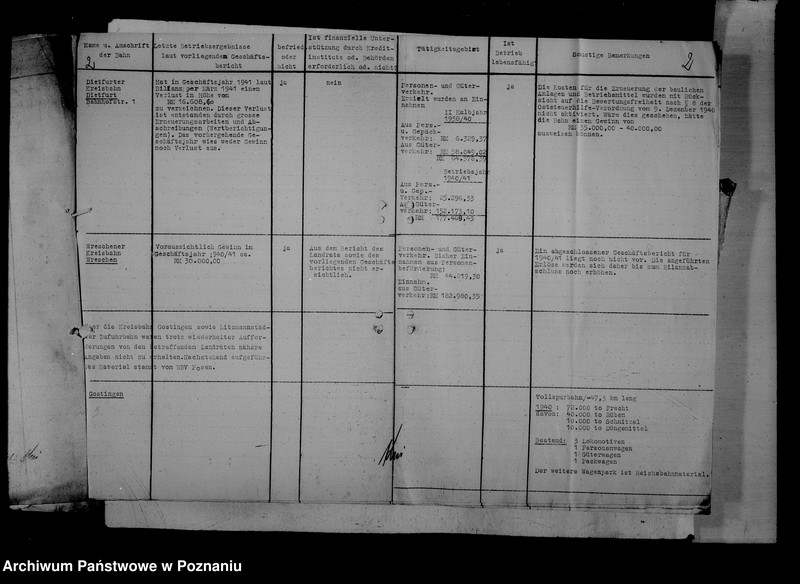 2
2
Name u. Anschrift
der Bahn
Letzte Betriebsergebnisse
laut vorliegendem Geschäfts-
bericht
befried.
oder
nicht
Ist finanzielle Unter-
stützung durch Kredit-
institute od. Behörden
erforderlich od. nicht?
Tätigkeitsgebiet
Ist
Betrieb
lebensfähig?
Sonstige Bemerkungen
Dietfurter
Kreisbahn
Dietfurt
Bahnhofstr. 1
Hat im Geschäftsjahr 1941 laut
Bilanz per März 1941 einen
Verlust in Höhe von
RM 16.608,60
zu verzeichnen. Dieser Verlust
ist entstanden durch grosse
Erneuerungsarbeiten und Ab-
schreibungen (Wertberichtigun-
gen). Das vorhergehende Ge-
schäftsjahr wies weder Gewinn
noch Verlust aus.
ja
nein
Personen- und Güter-
verkehr.
Erzielt wurden an Ein-
nahmen
II Halbjahr
1939/40
Aus Pers.-
u. Gepäck-
verkehr: RM 6.329,37
Aus Güter-
verkehr: RM 58.049,02
RM
Betriebsjahr
1940/41
Aus Pers.-
u. Gep.-
Verkehr: 25.296,33
Güter-
verkehr: 152.173,10
RM
ja
Die Kosten für die Erneuerung der baulichen
Anlagen und Betriebsmittel wurden mit Rück-
sicht auf die Bewertungsfreiheit nach § 8 der
Oststeuerhilfe-Verordnung vom 9. Dezember 1940
nicht aktiviert. Wäre dies geschehen, hätte
die Bahn einen Gewinn von
RM 35.000,00 - 40.000,00
ausweisen können.
Wreschener
Kreisbahn
Wreschen
Voraussichtlich Gewinn in
Geschäftsjahr 1940/41 ca.
RM 30.000,00
ja
Aus dem Bericht des
Landrats sowie des
vorliegenden Geschäfts
berichtes nicht er-
sichtlich.
Personen- und Güter-
verkehr. Bisher Ein-
nahmen aus Personen-
beförderung:
RM 44.019,30
Einnahm.
aus Güter-
verkehr: RM 182.980,35
ja
Ein abgeschlossener Geschäftsbericht für
1940/41 liegt noch nicht vor. Die angeführten
Erlöse werden sich daher bis zum Bilanzab-
schluss noch erhöhen.
Über die Kreisbahn Gostingen sowie Litzmannstäd-
ter Zufuhrbahn waren trotz wiederholter Auffor-
derungen von den betreffenden Landräten nähere
Angaben nicht zu erhalten. Nachstehend aufgeführ-
tes Material stammt von WBV Posen.
Gostingen
Vollspurbahn/-47,5 km lang
1940 : 72.000 to Fracht
davon: 40.000 to Rüben
10.000 to Schnitzel
10.000 to Düngemittel
Bestand: 3 Lokomotiven
1 Personenwagen
1 Güterwagen
1 Packwagen
Der weitere Wagenpark ist Reichsbahnmaterial.
Archiwum Państwowe w Poznaniu